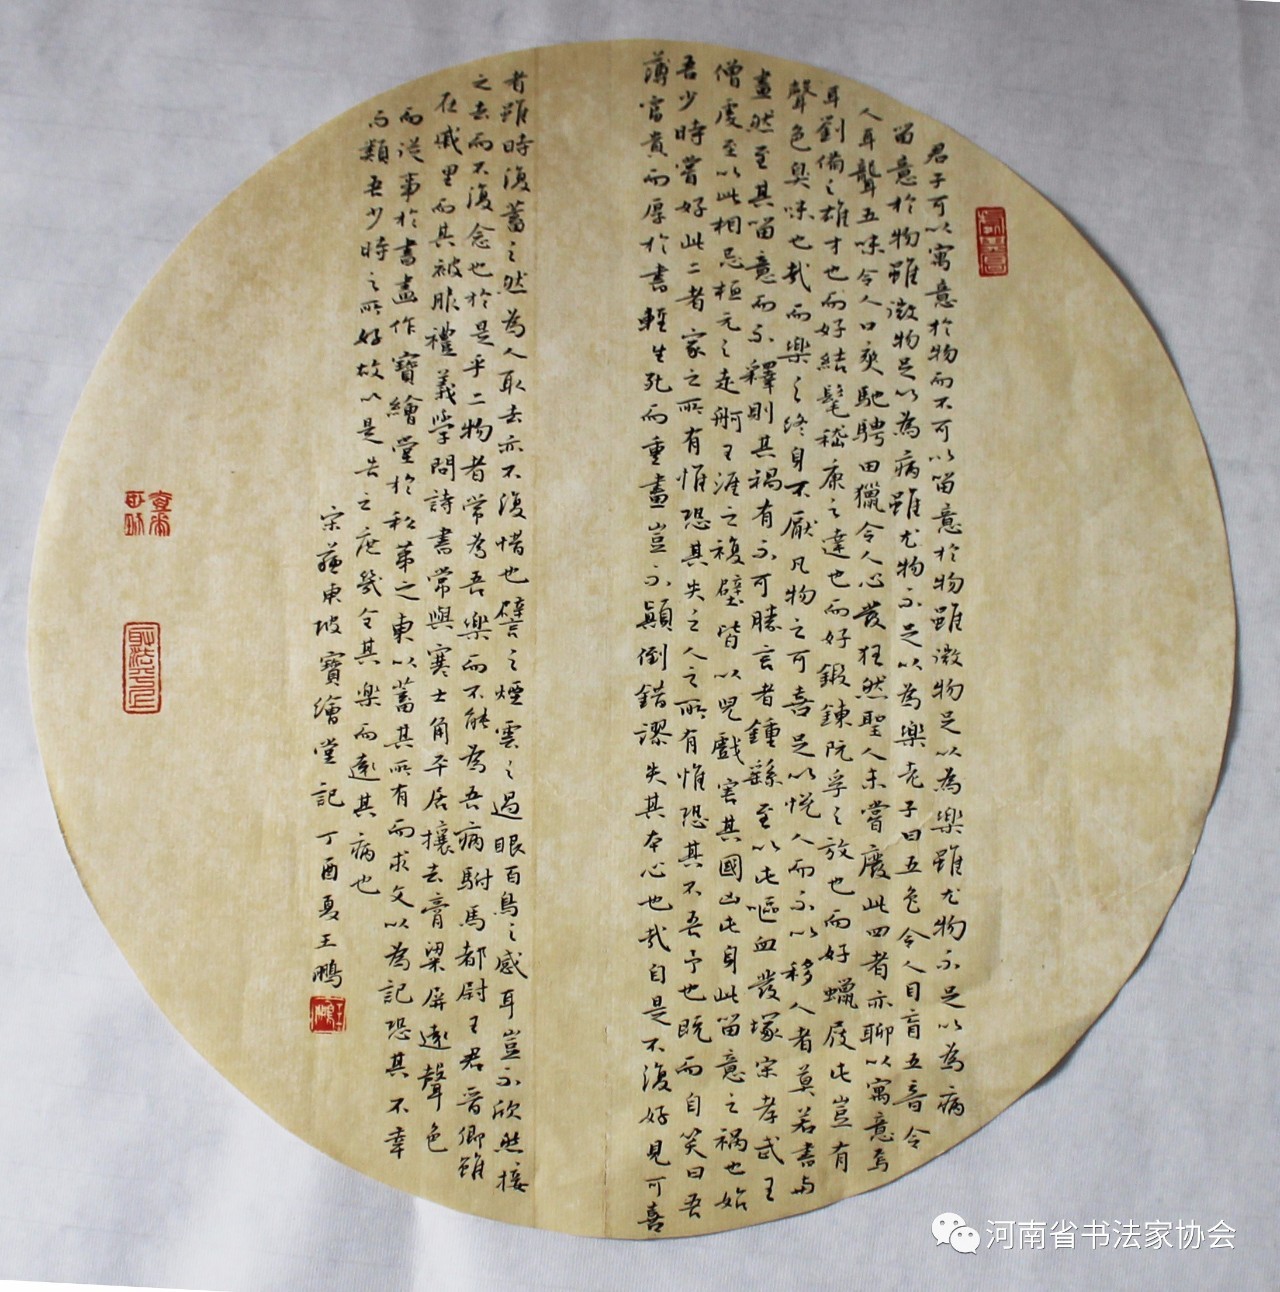 君子可以寓意於物而不可以留意於物雖微物足以為樂雖尤物不足以為病
留意於物雖微物足以為病雖尤物不足以為樂老子曰五色令人目盲五音令
人耳聾五味令人口爽馳騁田獵令人心發狂然聖人未嘗廢此四者亦聊以寓意焉
耳劉備之雄才也而好結髦嵇康之達也而好鍛鍊阮孚之放也而好蠟屐此豈有
聲色臭味也哉而樂之終身不厭凡物之可喜足以悅人而不以移人者莫若書與
畫然至其留意而不釋則其禍有不可勝言者鍾繇至以此嘔血發塚宋孝武王
僧虔至以此相忌桓元之走舸王涯之複壁皆以兒戲害其國凶此身此留意之禍也始
吾少時嘗好此二者家之所有惟恐其失之人之所有惟恐其不吾予也既而自笑曰吾
薄富貴而厚於書輕生死而重畫豈不顛倒錯謬失其本心也哉自是不復好見可喜
者雖時復蓄之然為人取去亦不復惜也譬之煙雲之過眼百鳥之感耳豈不欣然接
之去而不復念也於是乎二物者常為吾樂而不能為吾病駙馬都尉王君晉卿雖
在戚里而其被服禮義學問詩書常與寒士角平居攘去膏粱屏遠聲色
而從事於書畫作寶繪堂於私第之東以蓄其所有而求文以為記恐其不幸
而類吾少時之所好故以是告之庶幾全其樂而遠其病也
宋蘇東坡寶繪堂記丁酉夏王鵬
河南省书法家协会